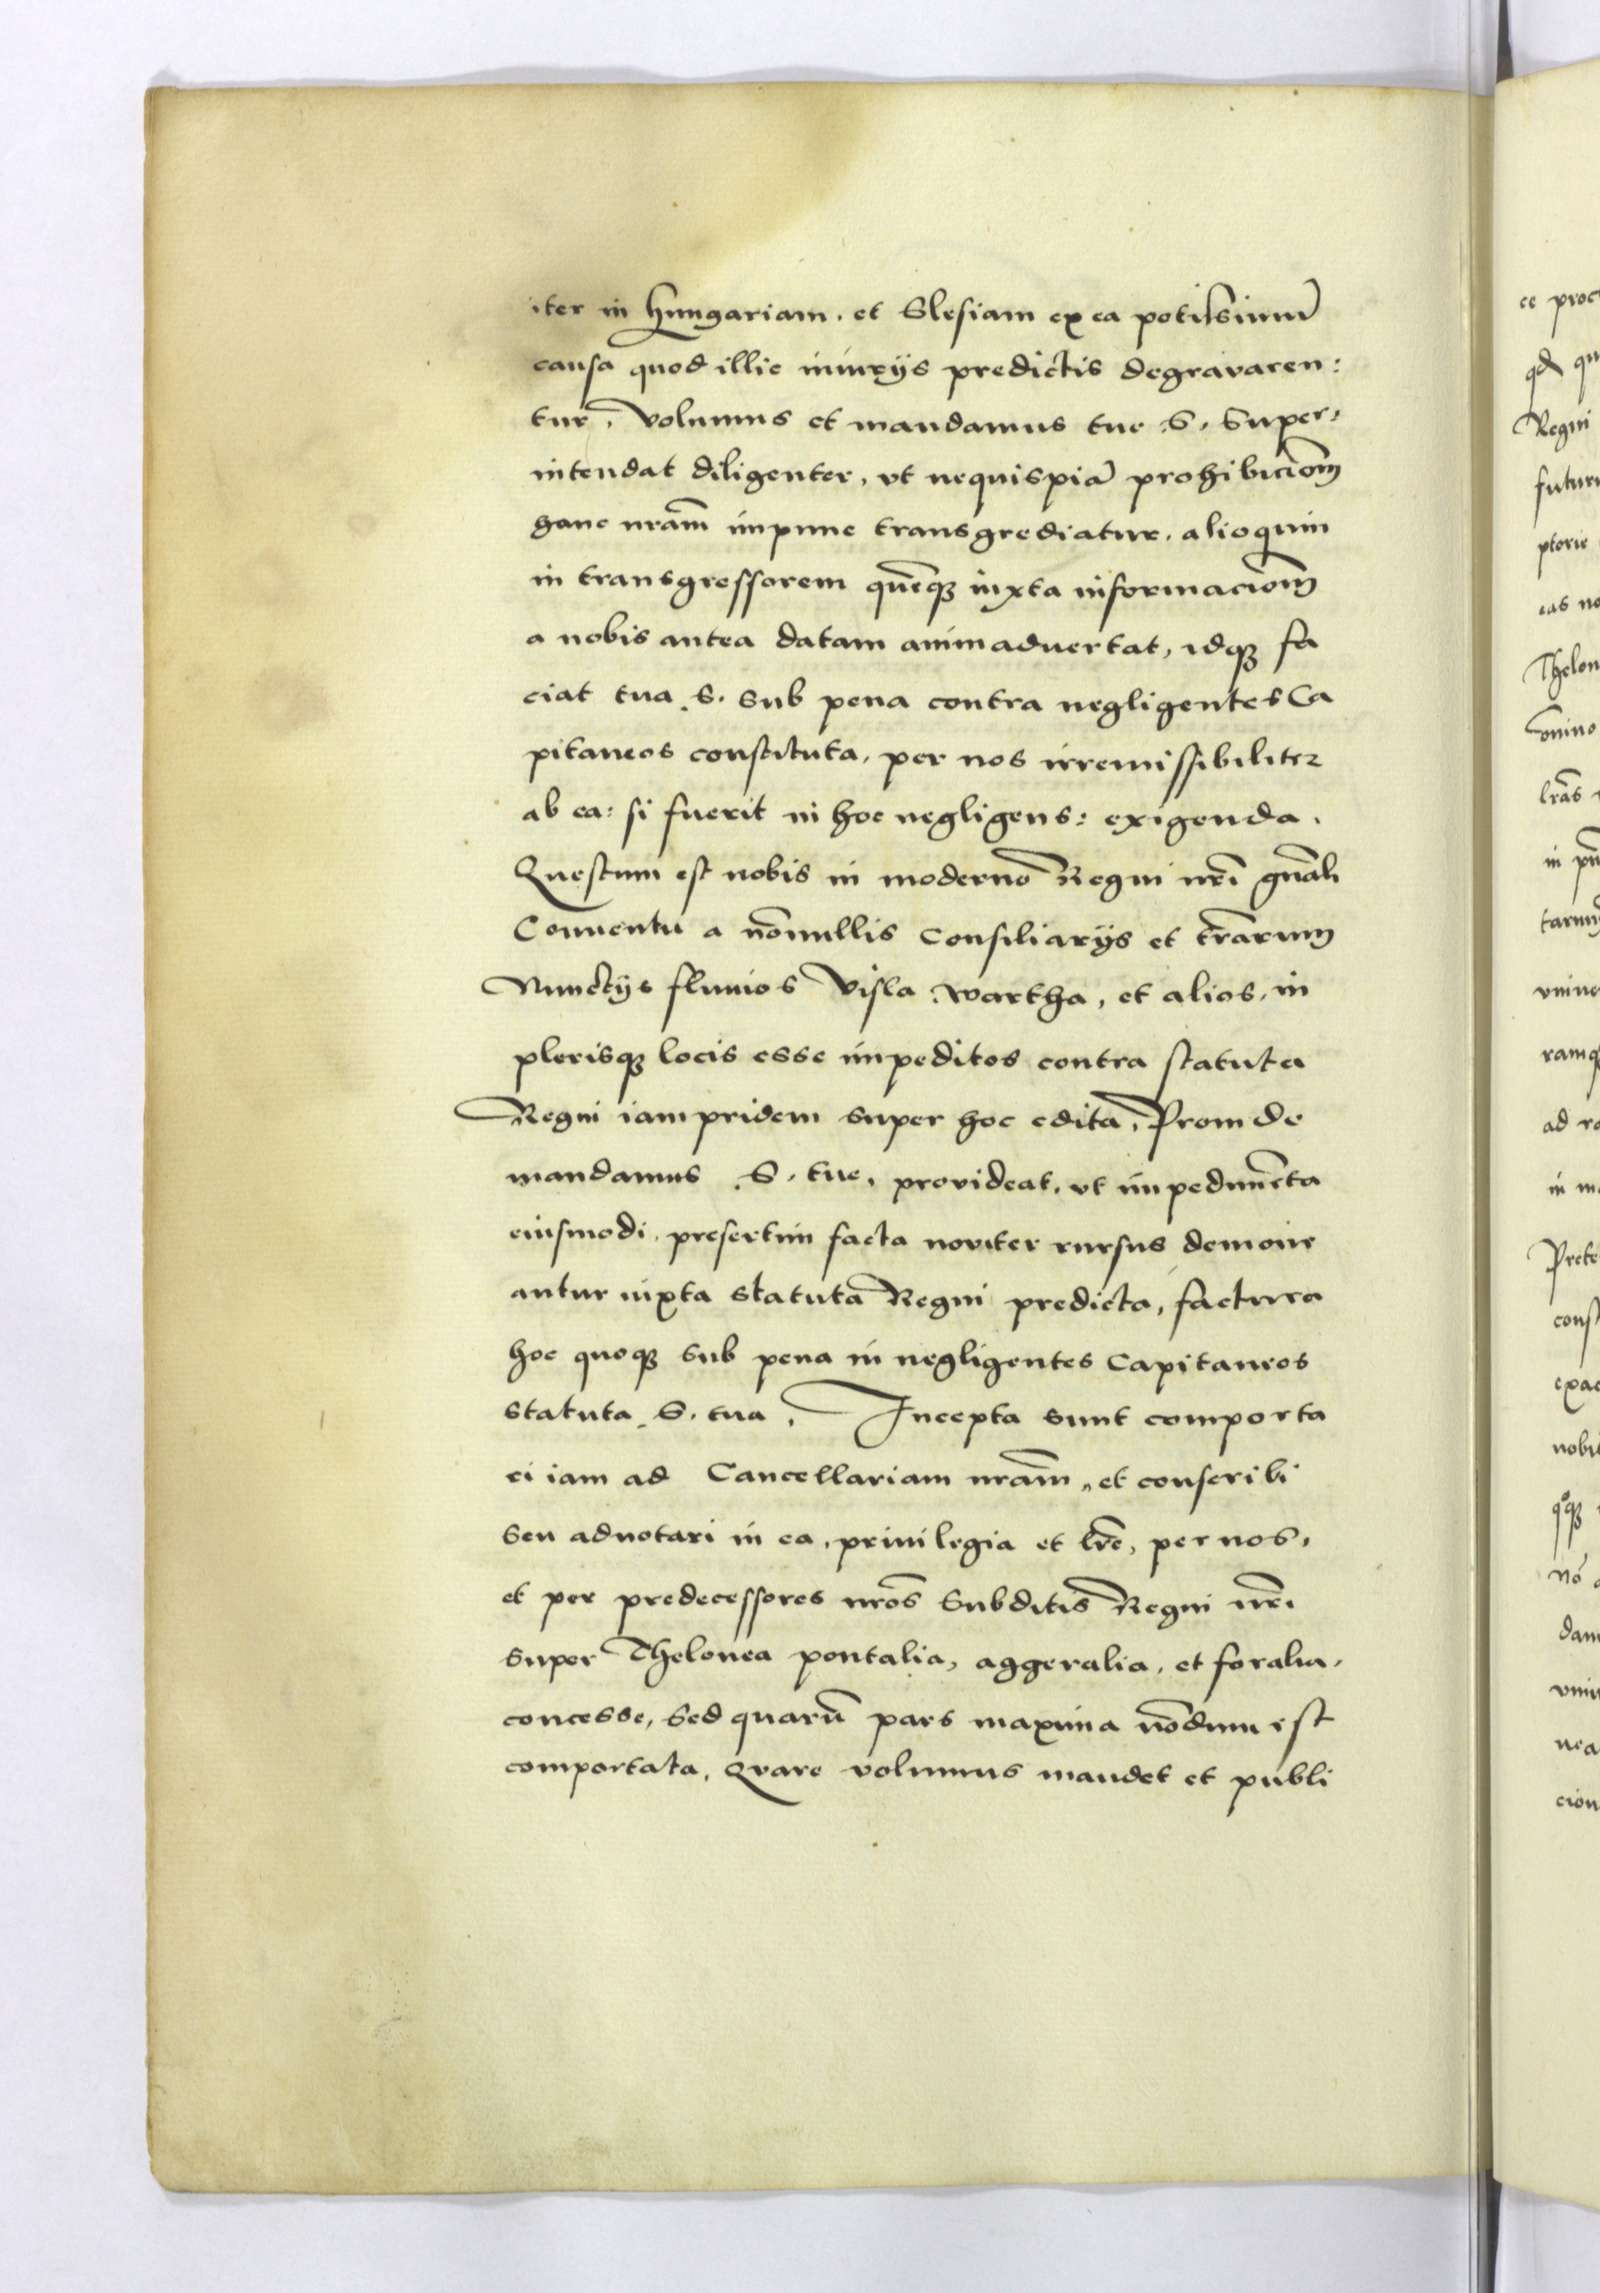 iter in Hungariam. et Slesiam ex ea potissimũ
causa quod illic iniurijs predictis degravaren:
tur, volumus et mandamus tue .S. Super,
intendat diligenter, vt nequispiã prohibiciom̃
hanc nrãm impune transgrediatur. alioquin
in transgressorem quẽqꝫ iuxta informaciom̃
a nobis antea datam animaduertat, idqꝫ fa
ciat tua .S. sub pena contra negligentes Ca
pitaneos constituta, per nos irremissibiliter
ab ea: si fuerit in hoc negligens: exigenda.
Questum est nobis in moderno Regni nrĩ gnãli
Conuentu a nõnullis consiliarijs et trãrum
Nunctijs fluuios Visla Wartha, et alios, in
plerisqꝫ locis esse impeditos contra statuta
Regni iampridem super hoc edita, Proinde
mandamus .S. tue, provideat, vt impedimẽta
eiusmodi, presertim facta noviter rursus demoue
antur iuxta statuta Regni predicta, factura
hoc quoqꝫ sub pena in negligentes Capitaneos
statuta .S. tua. Incepta sunt comporta
ri iam ad Cancellariam nrãm, et conscribi
seu adnotari in ea, priuilegia et lrẽ, per nos,
et per predecessores nrõs Subditis Regni nrĩ
super Thelonea pontalia, aggeralia, et foralia,
concesse, sed quarũ pars maxima nõdum est
comportata, Qvare volumus mandet et publi
ce
Regni
Thelon
in
ad
cons
nobis
cion